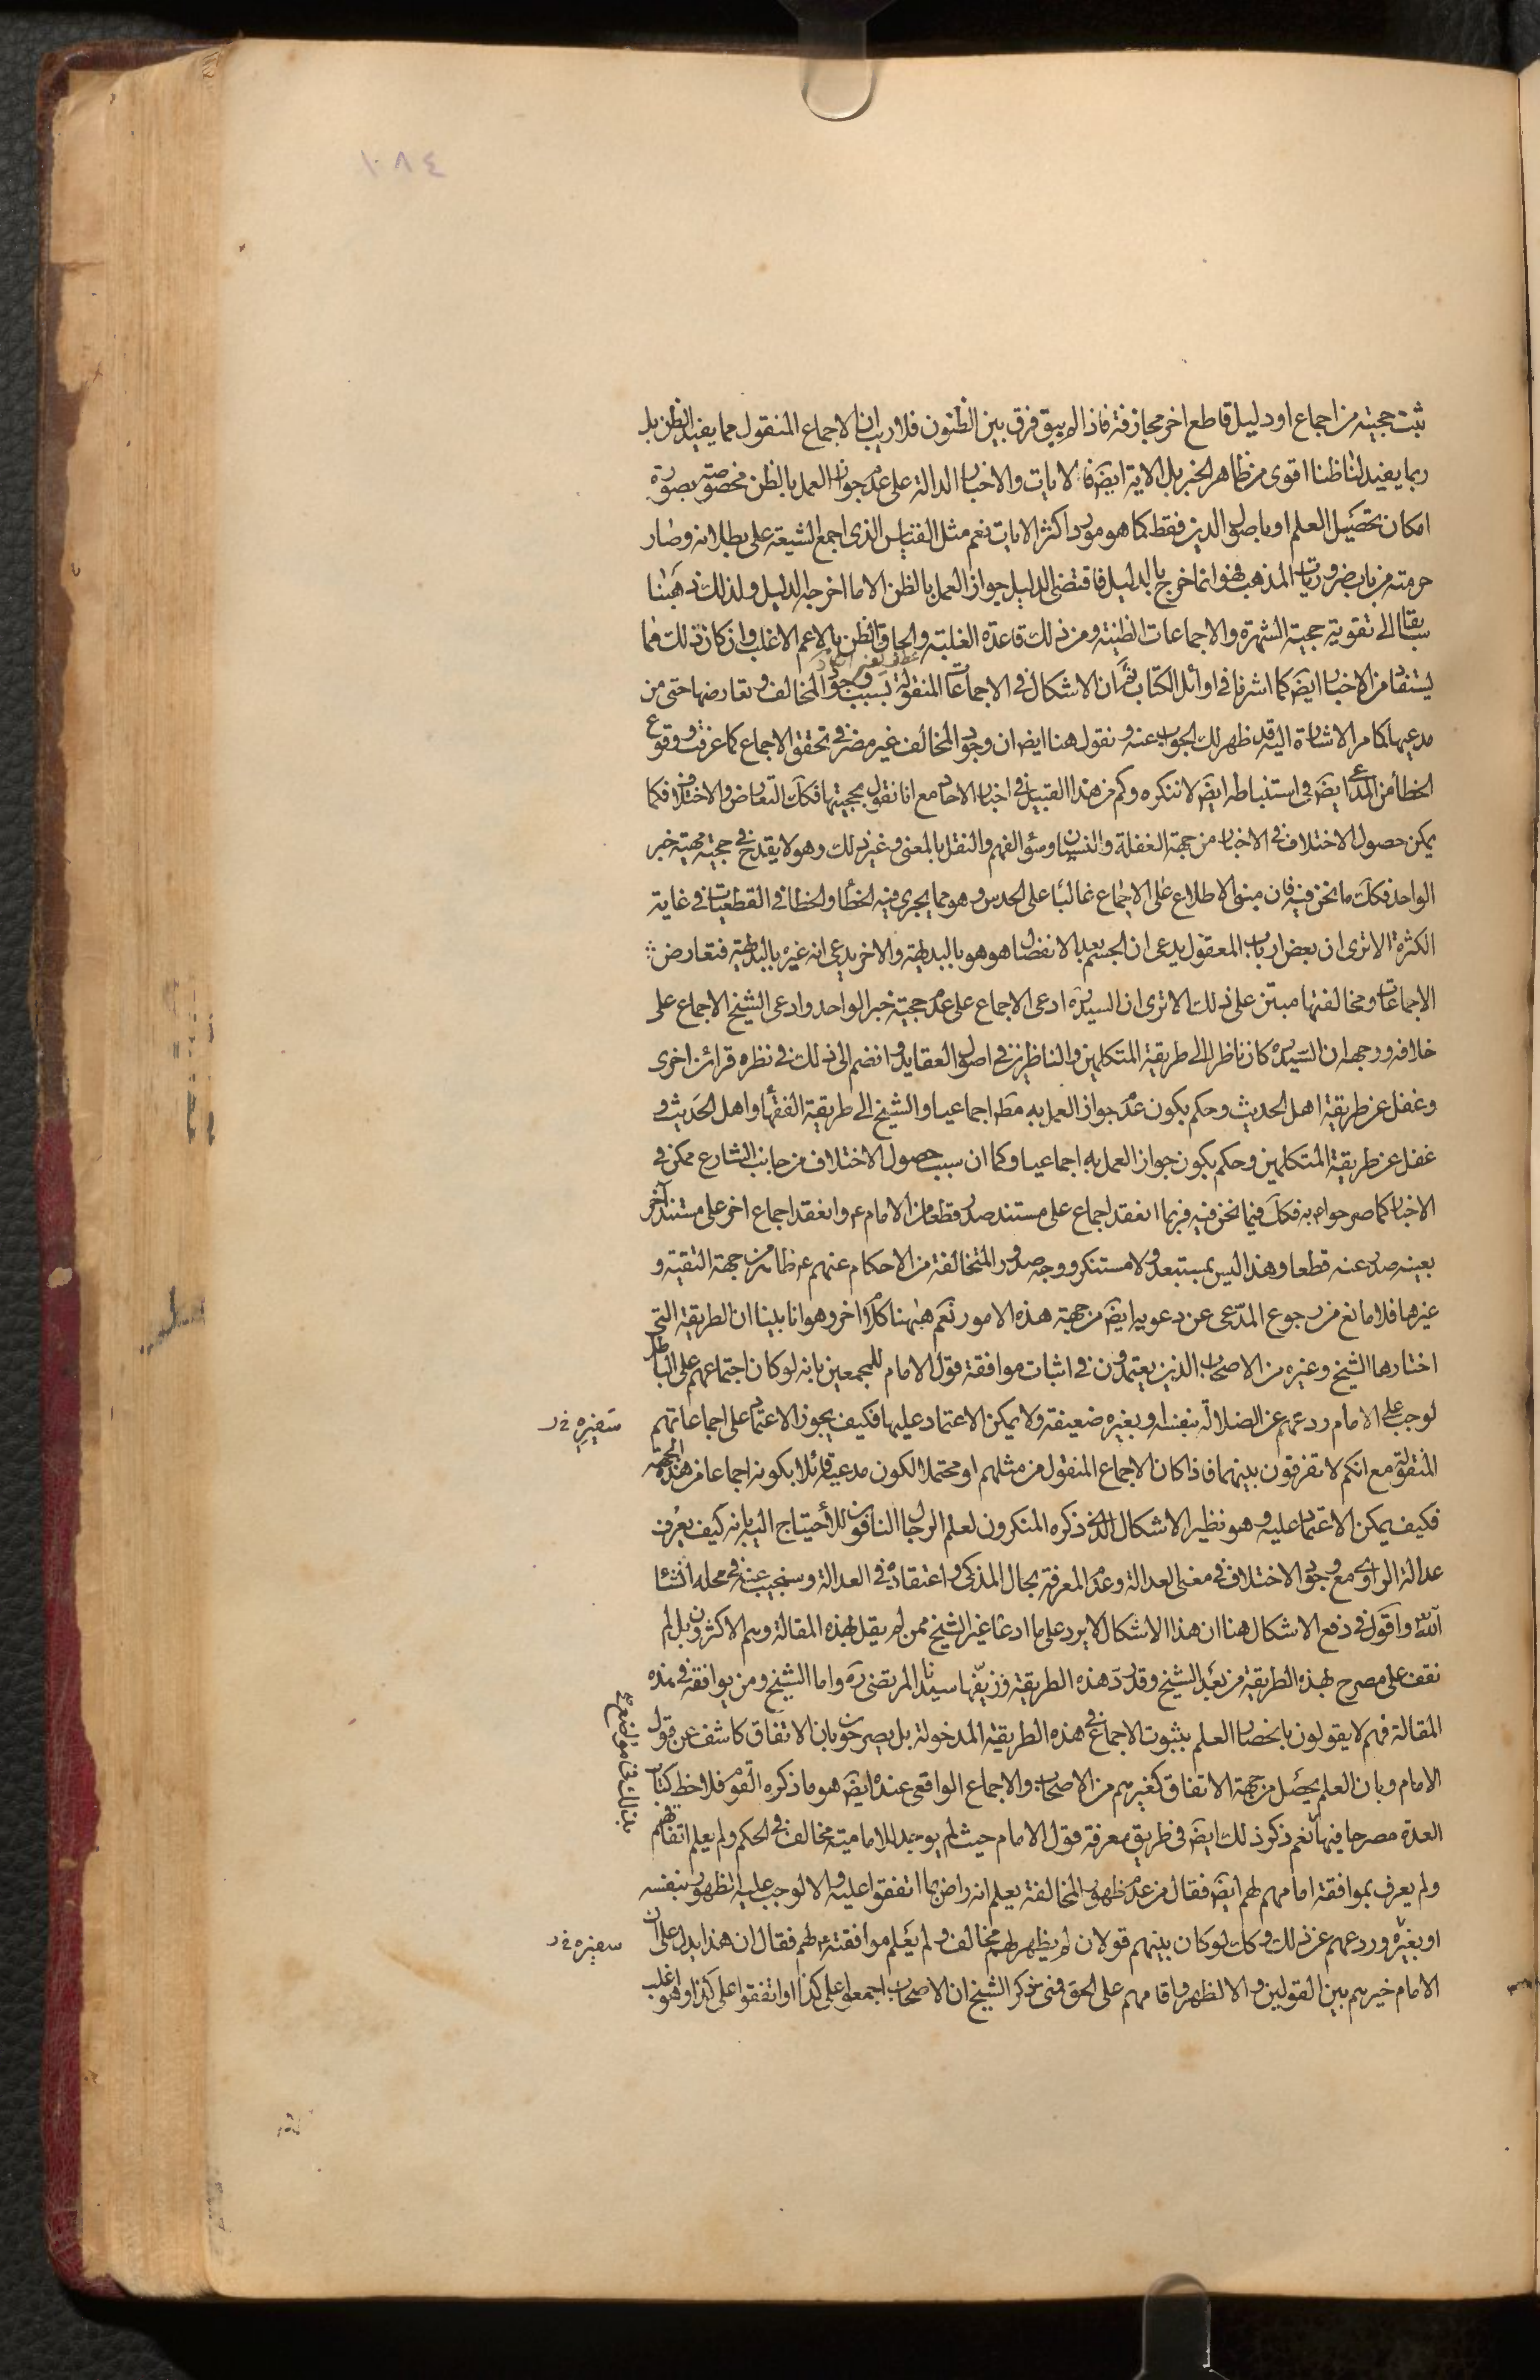 ١٠٨٤
ثبت حجيته من اجماع او دليل قاطع اخر مجازفة فاذا لم يبق فرق بين الظنون فلا ريب ان الاجماع المنقول مما يفيد الظن بل
ربما يفيد لنا ظنا اقوى من ظاهر الخبر بل الاية ايضَ فالايات والاخبار الدالة على عدم جواز العمل بالظن مخصوصة بصورة
امكان تحصيل العلم او باصول الدين فقط كما هو مورد اكثر الايات نعم مثل القياس الذى اجمع الشيعة على بطلانه وصار
حرمته من باب ضروريات المذهب فهو انما خرج بالدليل فاقتضى الدليل جواز العمل بالظن الا ما اخرجه الدليل ولذلك ذهبنا
سابقا الى تقوية حجية الشهرة والاجماعات الظنية ومن ذلك قاعدة الغلبة والحاق الظن بالاعم الاغلب وان كان ذلك مما
يستفاد من الاخبار ايضَ كما اشرنا فى اوائل الكتاب ثم ان الاشكال فى الاجماعات المنقولة بسبب وجود المخالف وتعارضها حتى من
مدعيها كما مر الاشارة اليه قد ظهر لك الجواب عنه ونقول هنا ايضا ان وجود المخالف غير مضر فى تحقق الاجماع كما عرفت ووقوع
الخطأ من المدعى ايضَ فى استنباطه ايضَ لا ننكره وكم من هذا القبيل فى اخبار الاحاد مع انا نقول بحجيتها فكك التعارض والاختلاف فكما
يمكن حصول الاختلاف فى الاخبار من جهة الغفلة والنسيان وسوء الفهم والنقل بالمعنى وغير ذلك وهو لا يقدح فى حجية مهية خبر
الواحد فكك ما نحن فيه فان مبنى الاطلاع على الاجماع غالبا على الحدس وهو مما يجرى فيه الخطأ والخطا فى القطعيات فى غاية
الكثرة الا ترى ان بعض ارباب المعقول يدعى ان الجسم بعد الانفصال هو هو بالبديهة والاخر يدعى انه غيره بالبديهة فتعارض
الاجماعات ومخالفتها مبتن على ذلك الا ترى ان السيد ره ادعى الاجماع على عدم حجية خبر الواحد وادعى الشيخ الاجماع على
خلافه ووجهه ان السيد ره كان ناظرا الى طريقة المتكلمين والناظرين فى اصول العقايد وانضم الى ذلك فى نظره قرائن اخرى
وغفل عن طريقة اهل الحديث وحكم بكون عدم جواز العمل به مطَ اجماعيا والشيخ الى طريقة الفقهاء واهل الحديث و
غفل عن طريقة المتكلمين وحكم بكون جواز العمل به اجماعيا وكما ان سبب حصول الاختلاف من جانب الشارع ممكن فى
الاخبار كما صرحوا به فكك فيما نحن فيه فربما انعقد اجماع على مستند صدر قطعا من الامام ع وانعقد اجماع اخر على مستند آخر
بعينه صدر عنه قطعا وهذا ليس بمستبعد ولا مستنكر ووجه صدور المتخالفة من الاحكام عنهم ع ظاهر من جهة التقية و
غيرها فلا مانع من رجوع المدّعى عن دعويه ايضَ من جهة هذه الامور نَعَم هيهنا كلام اخر وهو انا بينا ان الطريقة التى
اختارها الشيخ وغيره من الاصحاب الذين يعتمدون فى اثبات موافقة قول الامام للمجمعين بانه لو كان اجتماعهم على الباطل
لوجب على الامام ردعهم عن الضلالة بنفسه او بغيره ضعيفة ولا يمكن الاعتماد عليها فكيف يجوز الاعتماد على اجماعاتهم
المنقولة مع انكم لا تفرقون بينهما فاذا كان الاجماع المنقول من مثلهم او محتملا لكون مدعيه قائلا بكونه اجماعا من هذه الجهة
فكيف يمكن الاعتماد عليه وهو نظير الاشكال الذى ذكره المنكرون لعلم الرجال النافون للاحتياج اليه بانه كيف يعرف
عدالة الراوى مع وجود الاختلاف فى معنى العدالة وعدم المعرفة بحال المذكى واعتقاده فى العدالة وسنجيب عنه فى محله انشا
الله واقول فى دفع الاشكال هنا ان هذا الاشكال لا يرد على ما ادعاه غير الشيخ ممن لم يقل بهذه المقالة وهم الاكثرون بل لم
نقف على مصرح بهذه الطريقة من بعد الشيخ وقد ردّ هذه الطريقة وزيّفها سيدنا المرتضى ره واما الشيخ ومن يوافقه فى هذه
المقالة فهم لا يقولون بانحصار العلم بثبوت الاجماع فى هذه الطريقة المدخولة بل يصرحون بان الاتفاق كاشف عن قول
الامام وبان العلم يحصل من جهة الاتفاق كغيرهم من الاصحاب والاجماع الواقعى عنده ايضَ هو ما ذكره القوم فلاحظ كتاب
العدة مصرحا فيها نعم ذكر ذلك ايضَ فى طريق معرفة قول الامام حيث لم يوجد للامامية مخالف فى الحكم ولم يعلم اتفاقهم
ولم يعرف بموافقة امامهم لهم ايضَ فقال من عدم ظهور المخالفة يعلم انه راض بما اتفقوا عليه والا لوجب عليه الظهور بنفسه
او بغيره وردعهم عن ذلك وكك لو كان بينهم قولان لم يظهر لهم مخالف ولم يعلم موافقته لهم فقال ان هذا يدل على ان
الامام خيرهم بين القولين والا لظهر واقامهم على الحق فمتى ذكر الشيخ ان الاصحاب اجمعوا على كذا او اتفقوا على كذا وهو اغلب